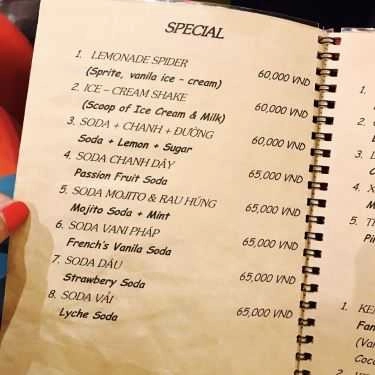 SPECIAL
1. LEMONADE SPIDER
(Sprite, vanila ice - cream) 60,000 VND
2. ICE – CREAM SHAKE
(Scoop of Ice Cream & Milk) 60,000 VND
3. SODA + CHANH + ĐƯỜNG
Soda + Lemon + Sugar 60,000 VND
4. SODA CHANH DÂY
Passion Fruit Soda 65,000 VND
5. SODA MOJITO & RAU HÚNG
Mojito Soda + Mint 65,000 VND
6. SODA VANI PHÁP
French's Vanila Soda 65,000 VND
7. SODA DÂU
Strawbery Soda 65,000 VND
8. SODA VẢI
Lyche Soda 65,000 VND